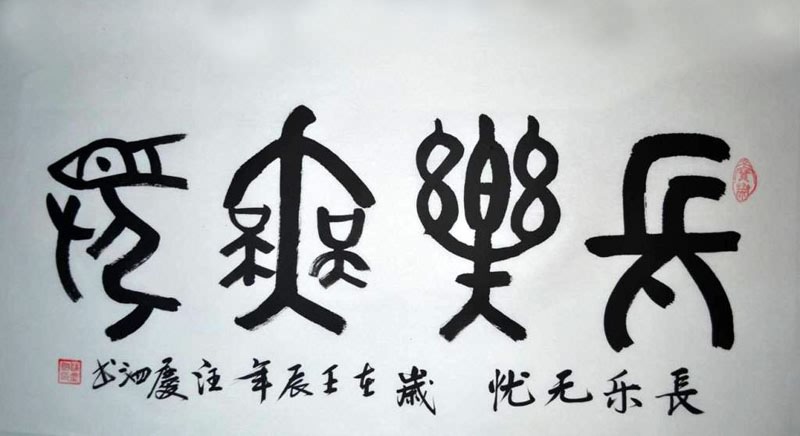 長樂無憂
長乐无忧 歲在壬辰年汪慶泗书